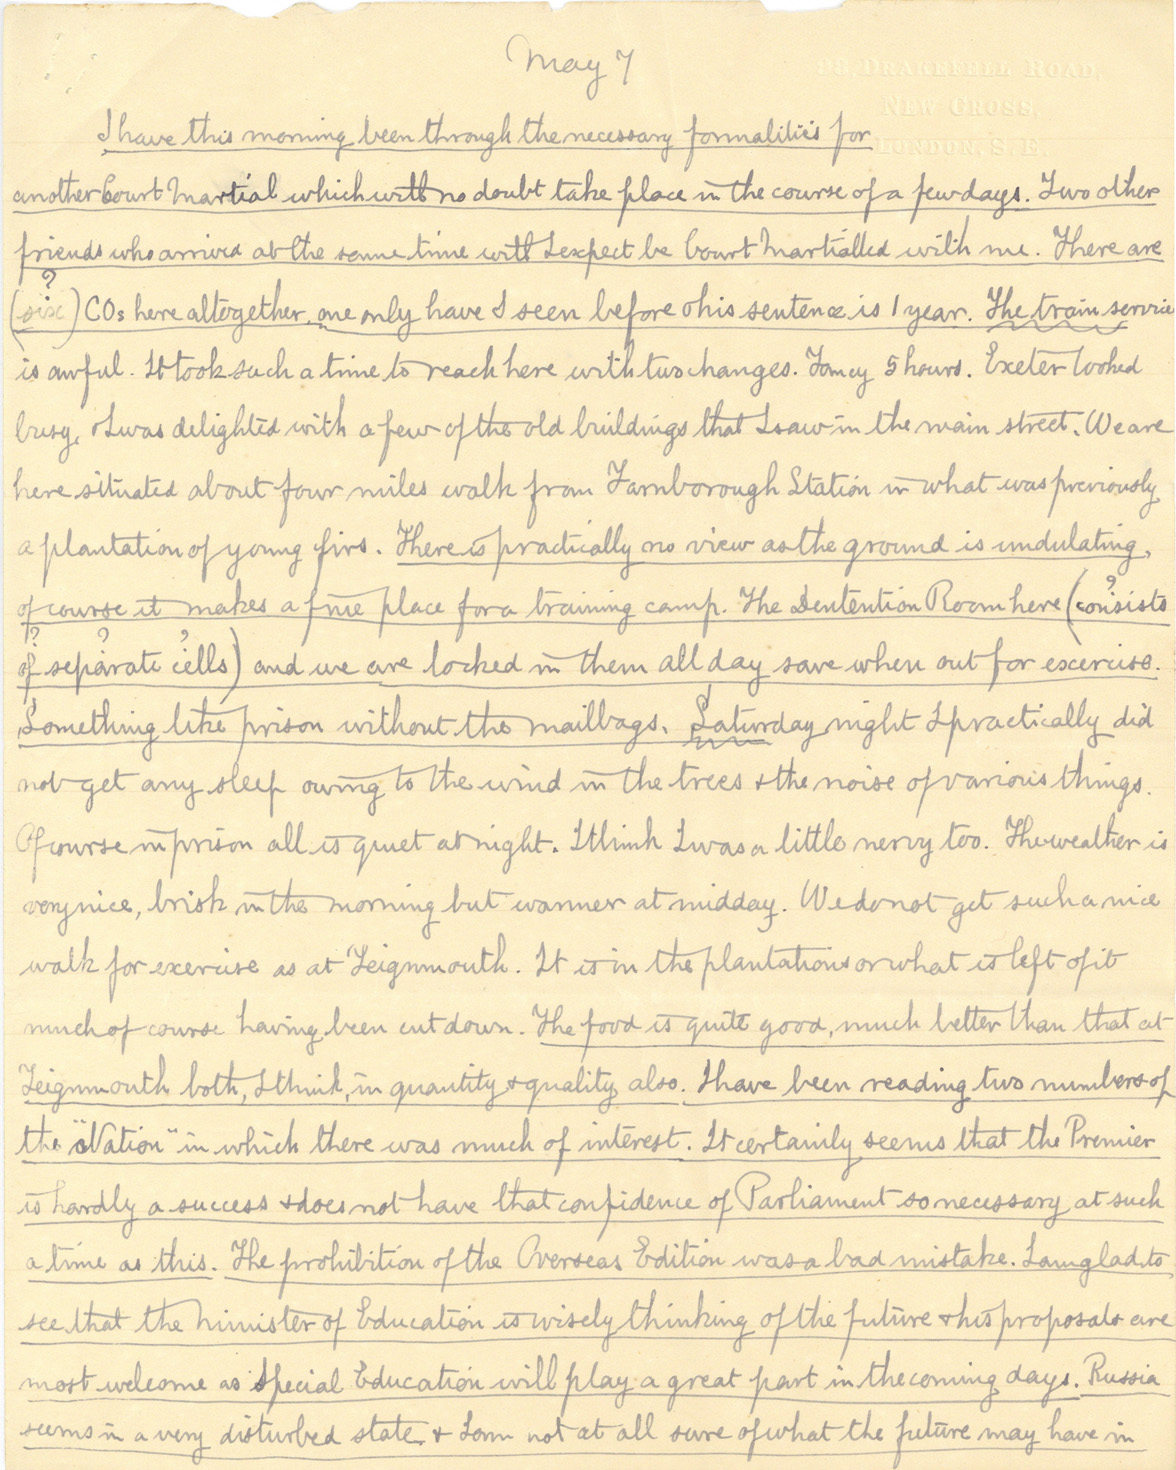 98, DRAKEFELL ROAD,
NEW CROSS,
LONDON, S.E.
May 7
I have this morning been through the necessary formalities for
another Court Martial which will no doubt take place in the course of a few days. Two other
friends who arrived at the same time will I expect be Court Martialled with me. There are
?
(six) COs here altogether, one only have I seen before & his sentence is 1 year. The train service
is awful. It took such a time to reach here with two changes. Fancy 5 hours. Exeter looked
busy, & I was delighted with a few of the old buildings that I saw in the main street. We are
here situated about four miles walk from Farnborough Station in what was previously
a plantation of young firs. There is practically no view as the ground is undulating,
of course it makes a fine place for a training camp. The Dentention Room here (consists
? ? ? ?
of separate cells) and we are locked in them all day save when out for excercise.
Something like prison without the mailbags. Saturday night I practically did
not get any sleep owing to the wind in the trees & the noise of various things.
Of course in prison all is quiet at night. I think I was a little nervy too. The weather is
very nice, brisk in the morning but warmer at midday. We do not get such a nice
walk for exercise as at Teignmouth. It is in the plantations or what is left of it
much of course having been cut down. The food is quite good, much better than that at
Teignmouth both, I think, in quantity & quality also. I have been reading two numbers of
the "Nation" in which there was much of interest. It certainly seems that the Premier
is hardly a success & does not have that confidence of Parliament so necessary at such
a time as this. The prohibition of the Overseas Edition was a bad mistake. I am glad to
see that the Minister of Education is wisely thinking of the future & his proposals are
most welcome as Special Education will play a great part in the coming days. Russia
seems in a very disturbed state & I am not at all sure of what the future may have in